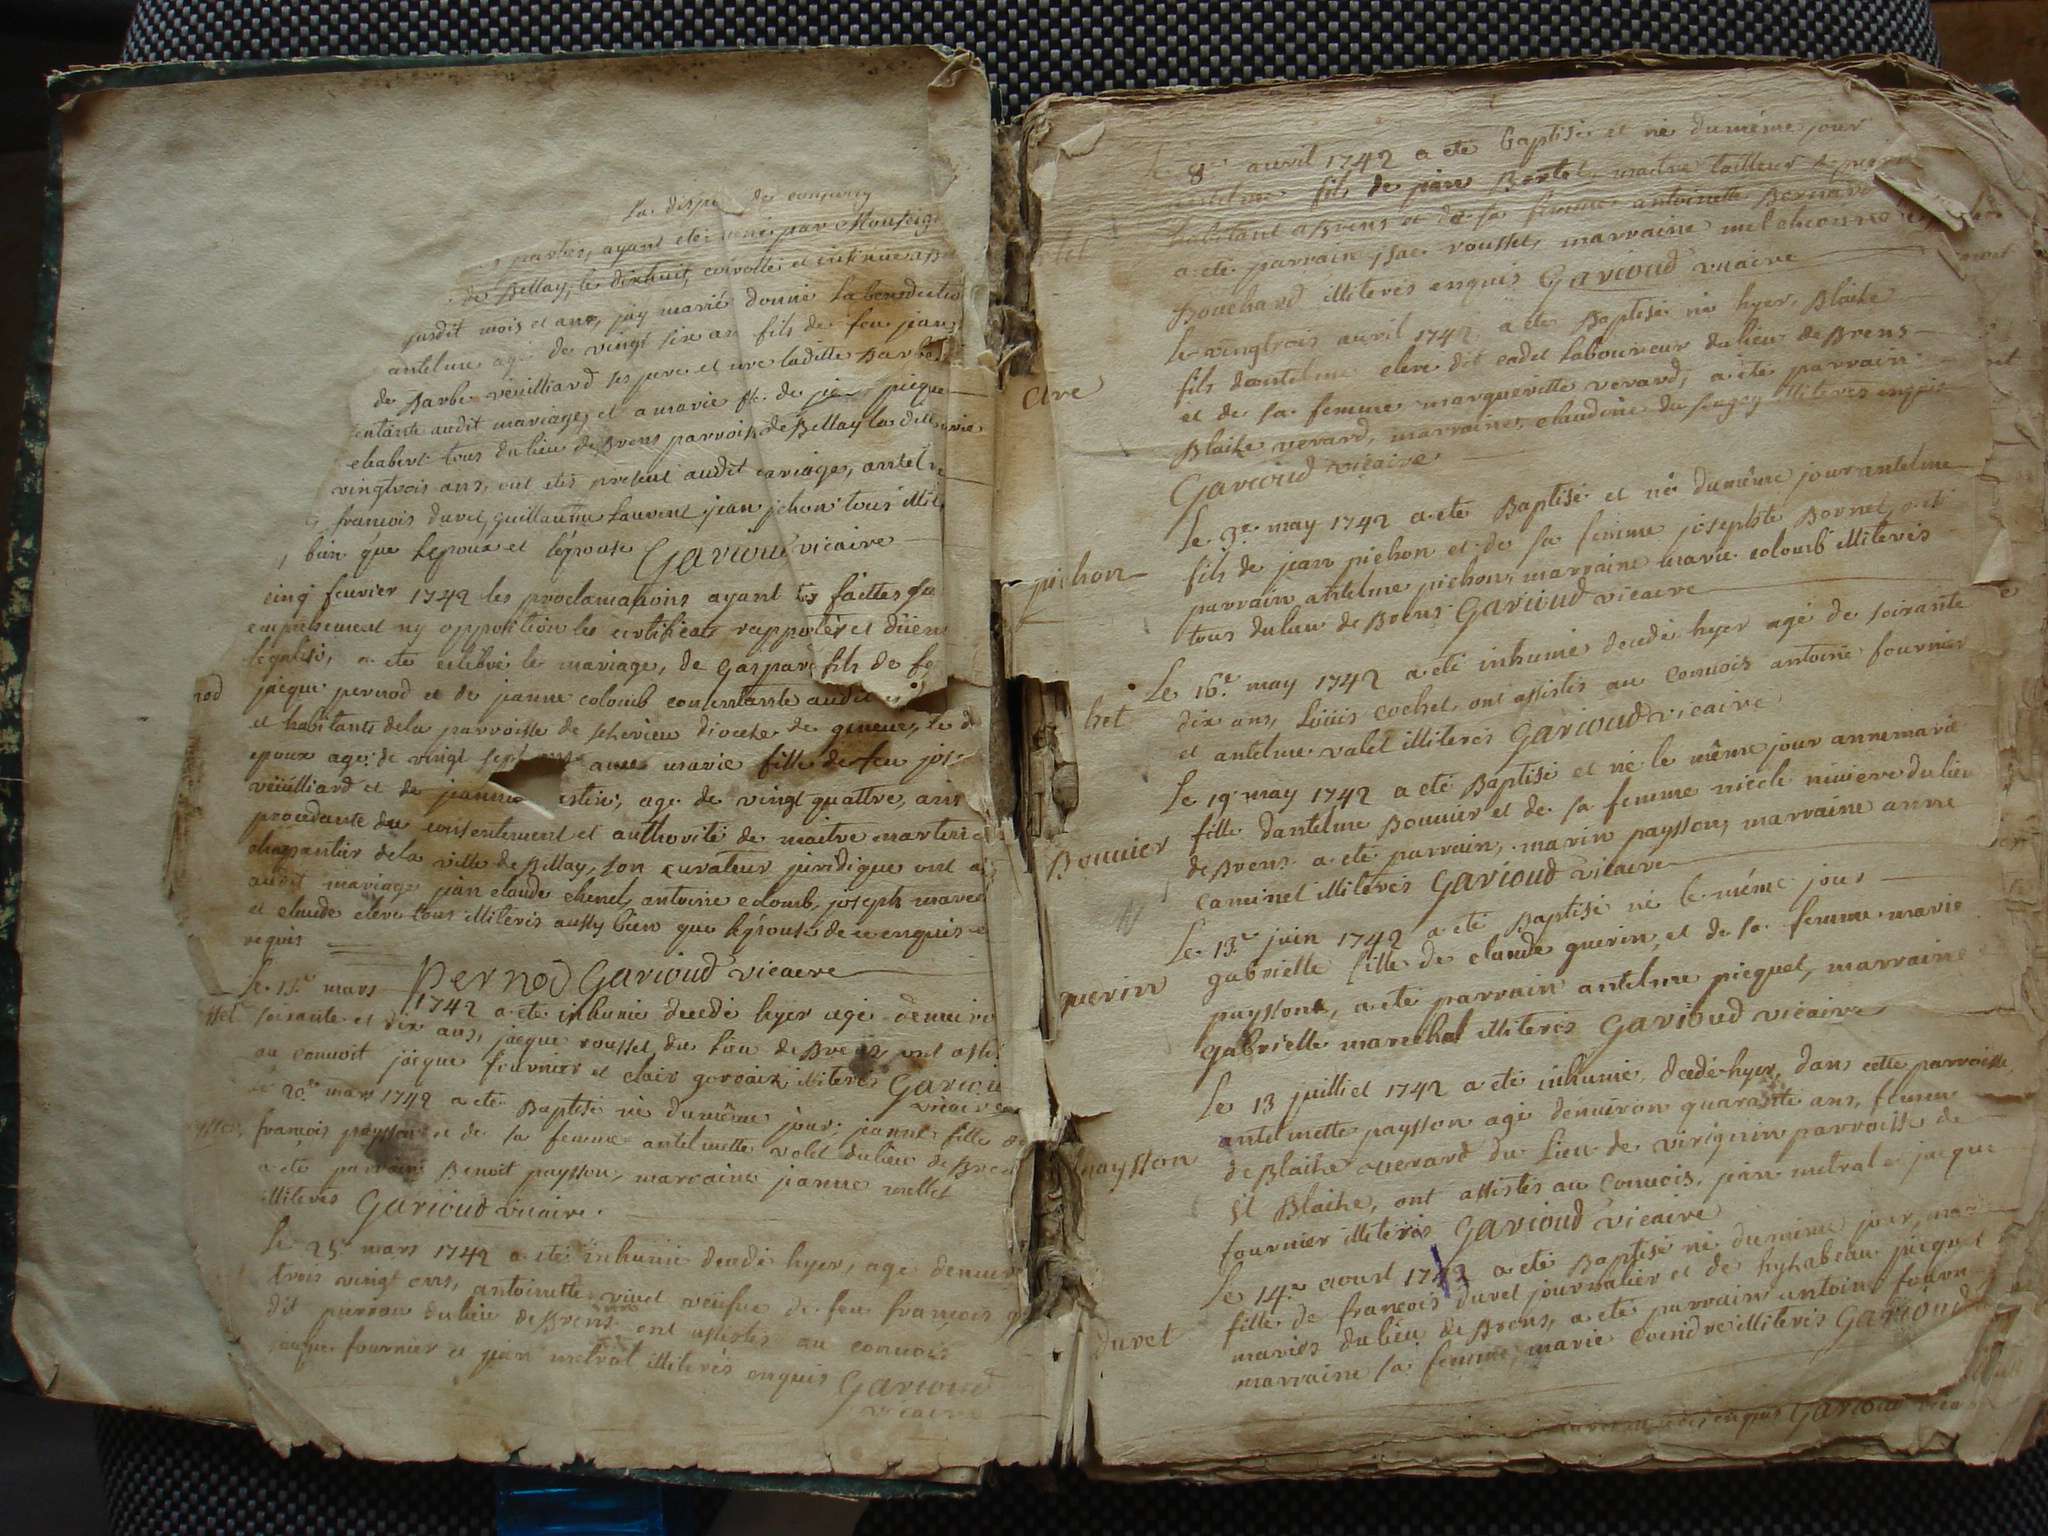 La dispe de
partes, ayant ete par Monseig
de Bellay, le dixhuit, controllé et insinué
susdit mois et an, jay marié donné la benedictio
antelme agé de vingt six an fils de feu jean
de Barbe veuilliard ses pere et mere laditte Barbe
entante audit mariage, et a marie fle de je picque
chabert tous du lieu de Brens parroisse de Bellay la ditte marie
vingtrois ans, ont etés present audit mariage, antel
francois duvet, guillaume Laurent jean pichon tous illit
bien que lepoux et lepouse Garioud vicaire
cinq feuvrier 1742 les proclamations ayant faittes
empechement ny opposition les certificats rapporter et düem
legalisé, a eté celebré le mariage, de Gaspar fils de fe
nod
jacque pernod et de jeanne colomb consentante audit
et habitants de la parroisse de diocese de geneve, le d
epoux agé de vingt sept ans avec marie fille de feu jos
veüilliard et de jeanne estin, age de vingt quattre, ans
procedante du consentement et authorité de maitre martin
charpantier dela ville de Bellay, son curateur juridique ont
audit mariage jean claude chenel, antoine colomb, joseph
et claude clere tous illiteris aussy bien que lépouse de ce enquis
requis
Pernod Garioud vicaire
Le 13e mars 1742 a ete inhumé decedé hyer agé denviro
ssel
soixante et dix ans, jacque roussel du Lieu de Brens ont assi
au convoit jacque fournier et clair gervaix illiteris Garioud
vicaire
Le 20e mars 1742 a ete Baptisé né dumême jour, jeanne fille de
francois paysson et de sa femme antelmette volet du lieu de Bren
a eté parrain Benoit paysson, marraine jeanne mellet
illiteris Garioud vicaire.
Le 25e mars 1742 a eté inhumé decedé hyer, age denvir
trois vingt ans, antoinette vüefve de feu francois
dit perrou du lieu de Brens ont assistés au convois
jacque fournier et jean metral illiterés enquis Garioud
vicaire
Le 8e avril 1742 a eté baptisé et né dumême jour
antelme fils de piere Bertet, maitre tailleur
habitant a Brens et de sa femme antoinette Bernard
a eté parrain jsac roussel, marraine
Bouchard illiteris enquis Garioud vicaire
Le vingtrois avril 1742 a ete Baptisé né hyer, Blaise
clre
fils dantelme clere dit cadet laboureur du lieu de Brens
et de sa femme marguerite verard, a eté parrain
Blaise verard, marraine, claudine du illiteres enquis
Garioud vicaire
Le 3e may 1742 a eté Baptisé et né dumême jour antelme
pichon
fils de jean pichon et de sa femme josephte Bornet, a eté
parrain antelme pichon, marraine marie colomb illiteris
tous du lieu de Brens Garioud vicaire
Le 16e may 1742 a eté inhumé decedé hyer agé de soixante
het
dix ans, Loüis cochet, ont assistés au convois antoine fournier
et antelme valet illiteris Garioud vicaire
Le 19e may 1742 a eté Baptisé et né le même jour annemarie
Bouvier
fille dantelme Bouvier et de sa femme niecle niviere du lieu
de Brens a eté parrain, marin paysson, marraine anne
caminet illiteris Garioud vicaire
Le 13e juin 1742 a eté Baptisé né le même jour
guerin
gabrielle fille de claude guerin, et de sa femme marie
payssone, a eté parrain antelme picquet, marraine
gabrielle marechal illiteris Garioud vicaire
Le 13 juilliet 1742 a eté inhumé, decedé hyer, dans cette parroisse,
paysson
antelmette paysson agé denviron quarante ans, femme
de Blaise averard du Lieu de virignin parroisse de
st Blaise, ont assistés au convois, jean metral et jacque
fournier illiteris Garioud vicaire
Le 14e aoust 1742 a eté Baptisé né dumême jour, mar
duvet
fille de francois duvet journalier et de hysabeau picquet
mariés du lieu de Brens, a eté parrain antoine fourn
marraine sa femme, marie coendre illiteris Garioud
enquis Garioud vicaire